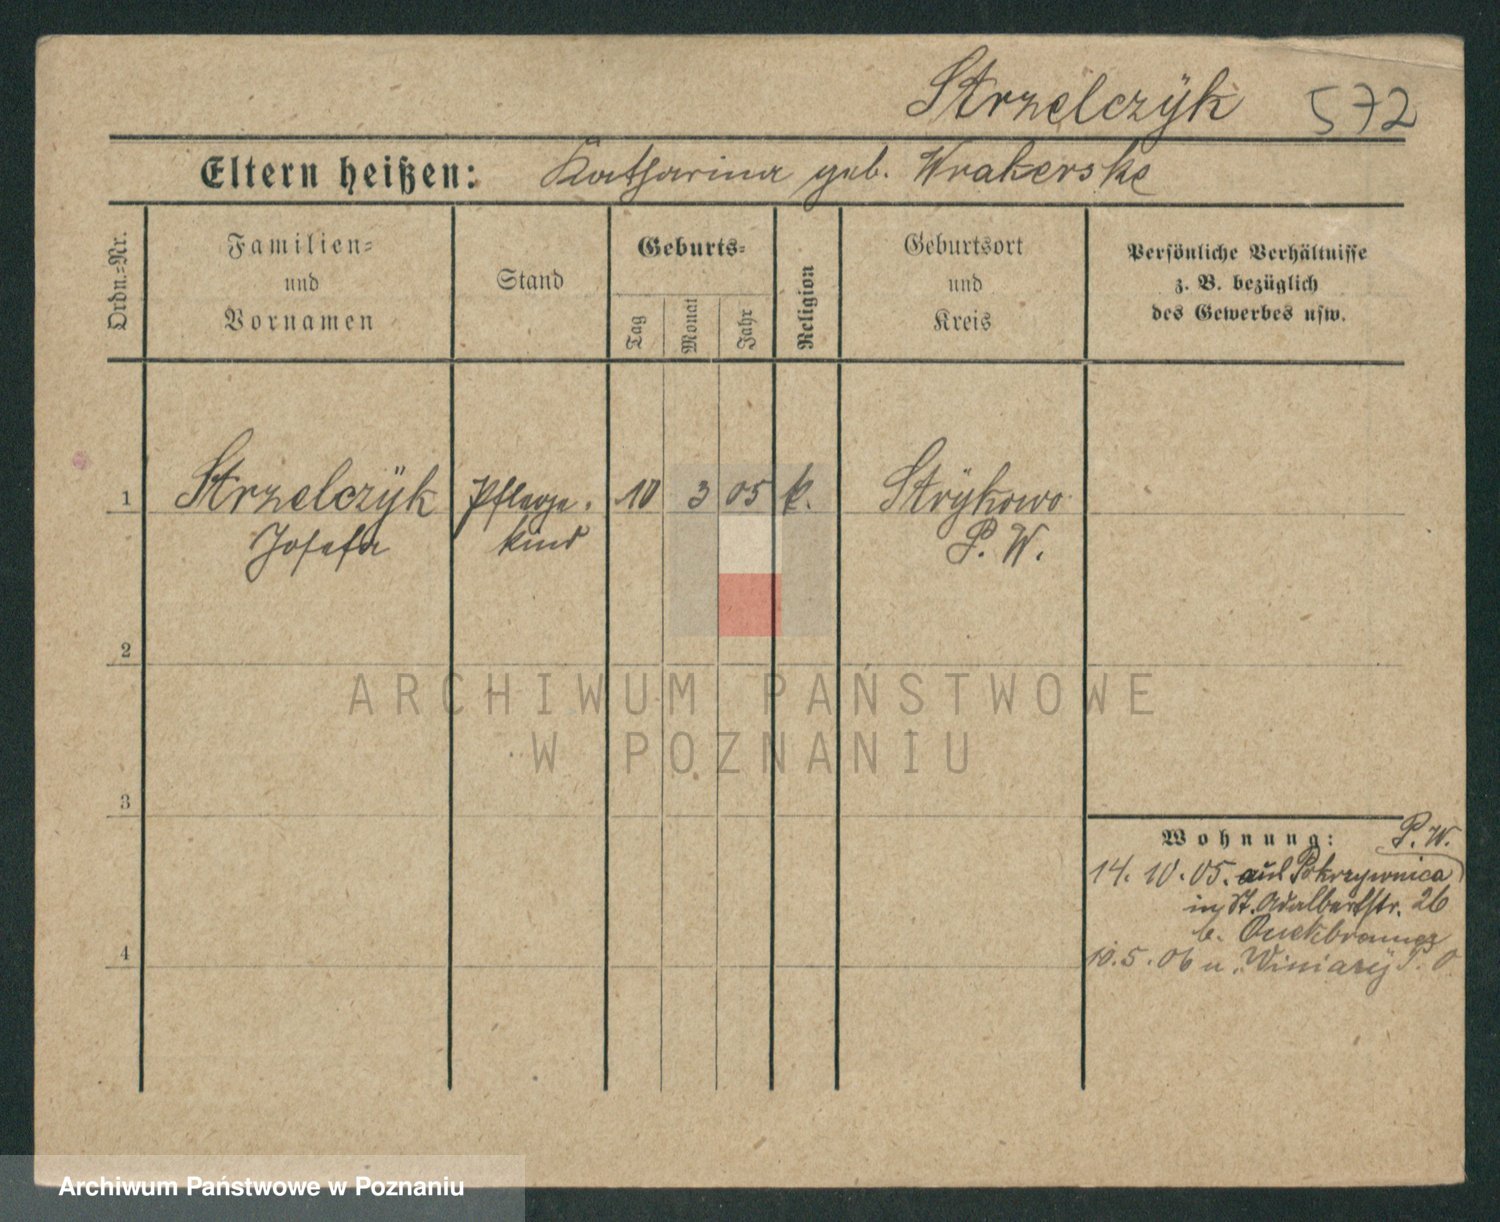 Strzelczÿk 572
Eltern heißen: Katharina geb. Wrakerske
Ordn.=Nr.
Familien=
und
Vornamen
Stand
Geburts=
Tag
Monat
Jahr
Religion
Geburtsort
und
Kreis
Persönliche Verhältnisse
z. B. bezüglich
des Gewerbes usw.
1 Strzelczÿk Pflege- 10 3 05 k. Strÿkowo
Josefa kind P. W.
2
ARCHIWUM PAŃSTWOWE
W POZNANIU
3
Wohnung: P. W.
14. 10. 05. aus Pokrzywnica
in St. Adalbertstr. 26
b.
4
10. 5. 06 n. Winiarÿ P. O.
Archiwum Państwowe w Poznaniu